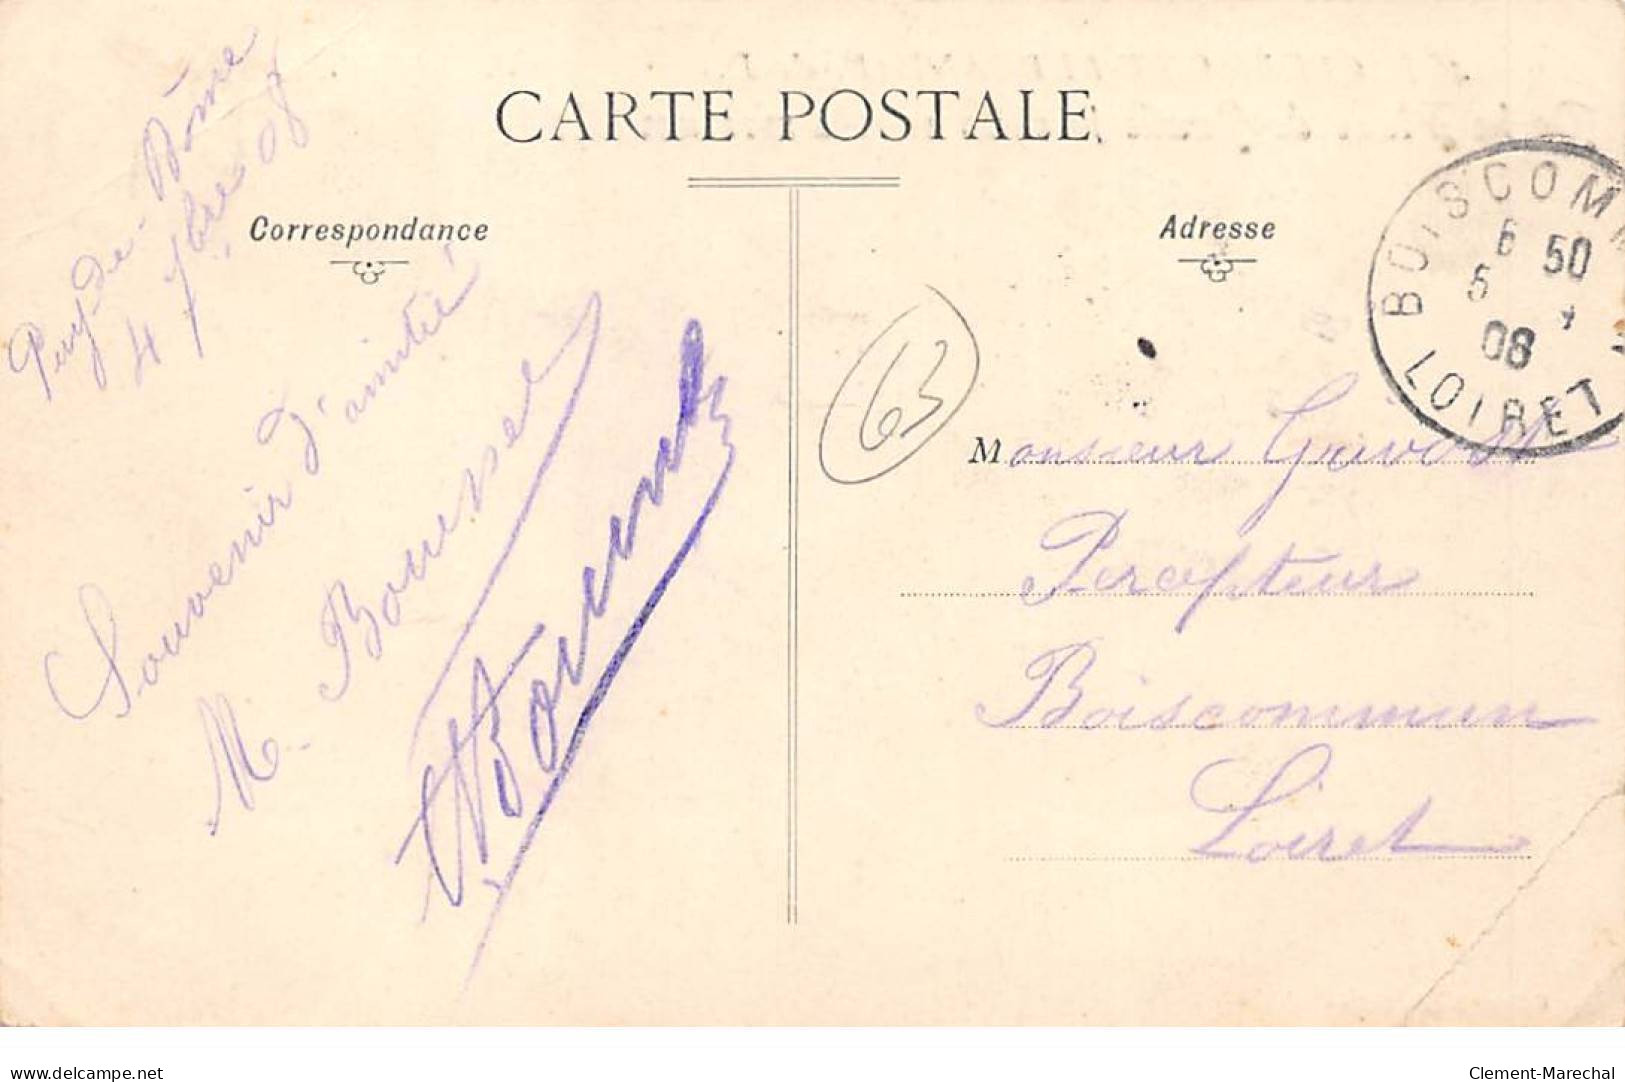 CARTE POSTALE
Correspondance
Adresse
Puy de-Dôme
4 7bre 08
Souvenir d'amitié!
M. Boursel
63
BOISCOMM
6 50
5
08
LOIRET
Monsieur
Percepteur
Boiscommun
Loiret
www.delcampe.net
Clement-Marechal